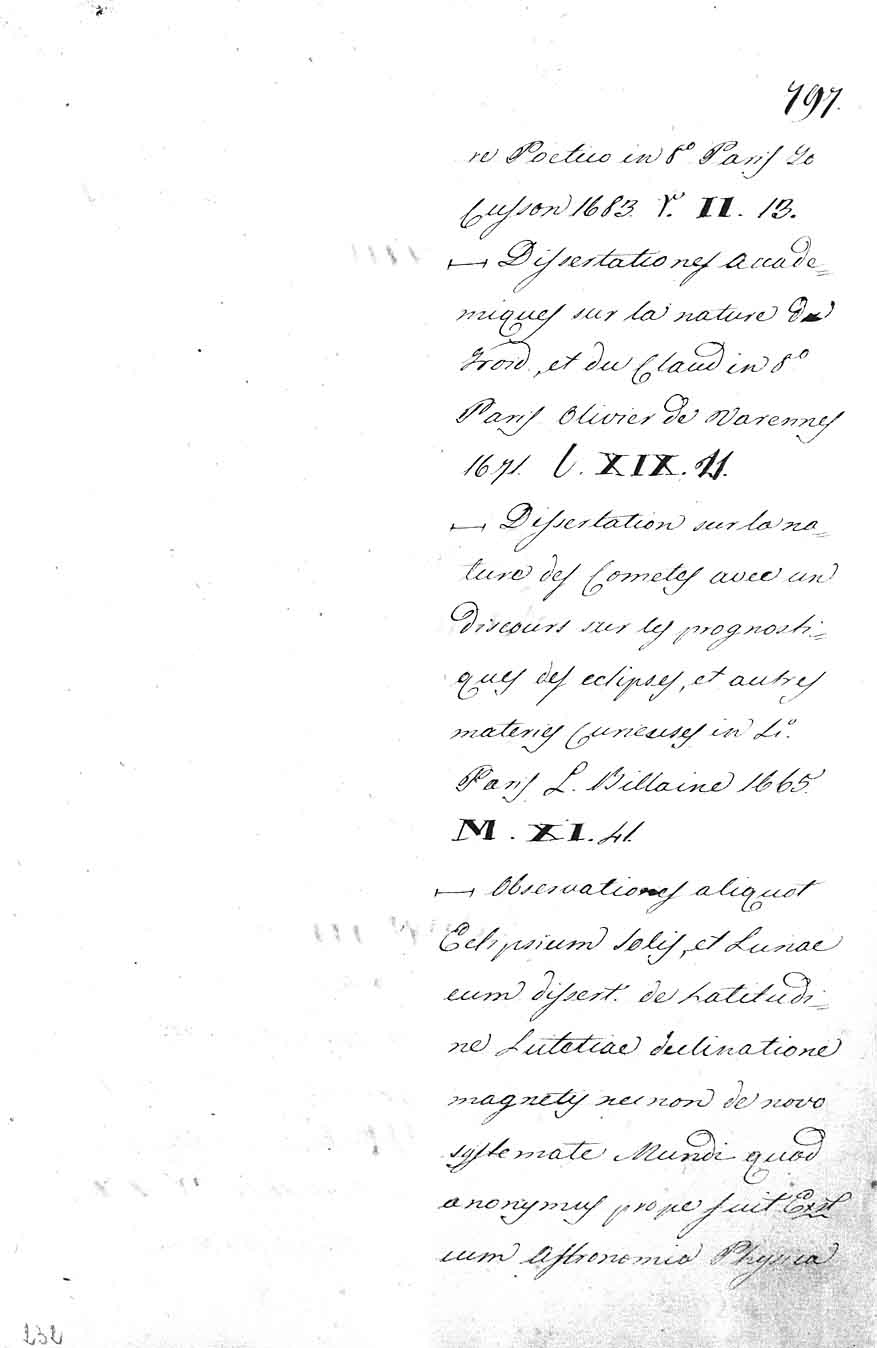 797.
re Poetico in 8° Paris Jo
Cusson 1683. Y. II. 13.
— Dissertationes Accade=
miques sur la nature du
Froid, et du Claud in 8°
Paris Olivier de Varennes
1671. C. XIX. 21.
— Dissertation sur la na=
ture des Cometes avec un
discours sur les prognosti=
ques des eclipses, et autres
materies Curieuses in 4°.
Paris L. Billaine 1665.
M. XI. 41.
— Observationes aliquot
Eclipsium Solis, et Lunae
cum dissert. de Latitudi=
ne Lutetiae declinatione
magnetis nec non de novo
systemate Mundi quod
anonymus propo suit Exst
cum Astronomia Physica
232